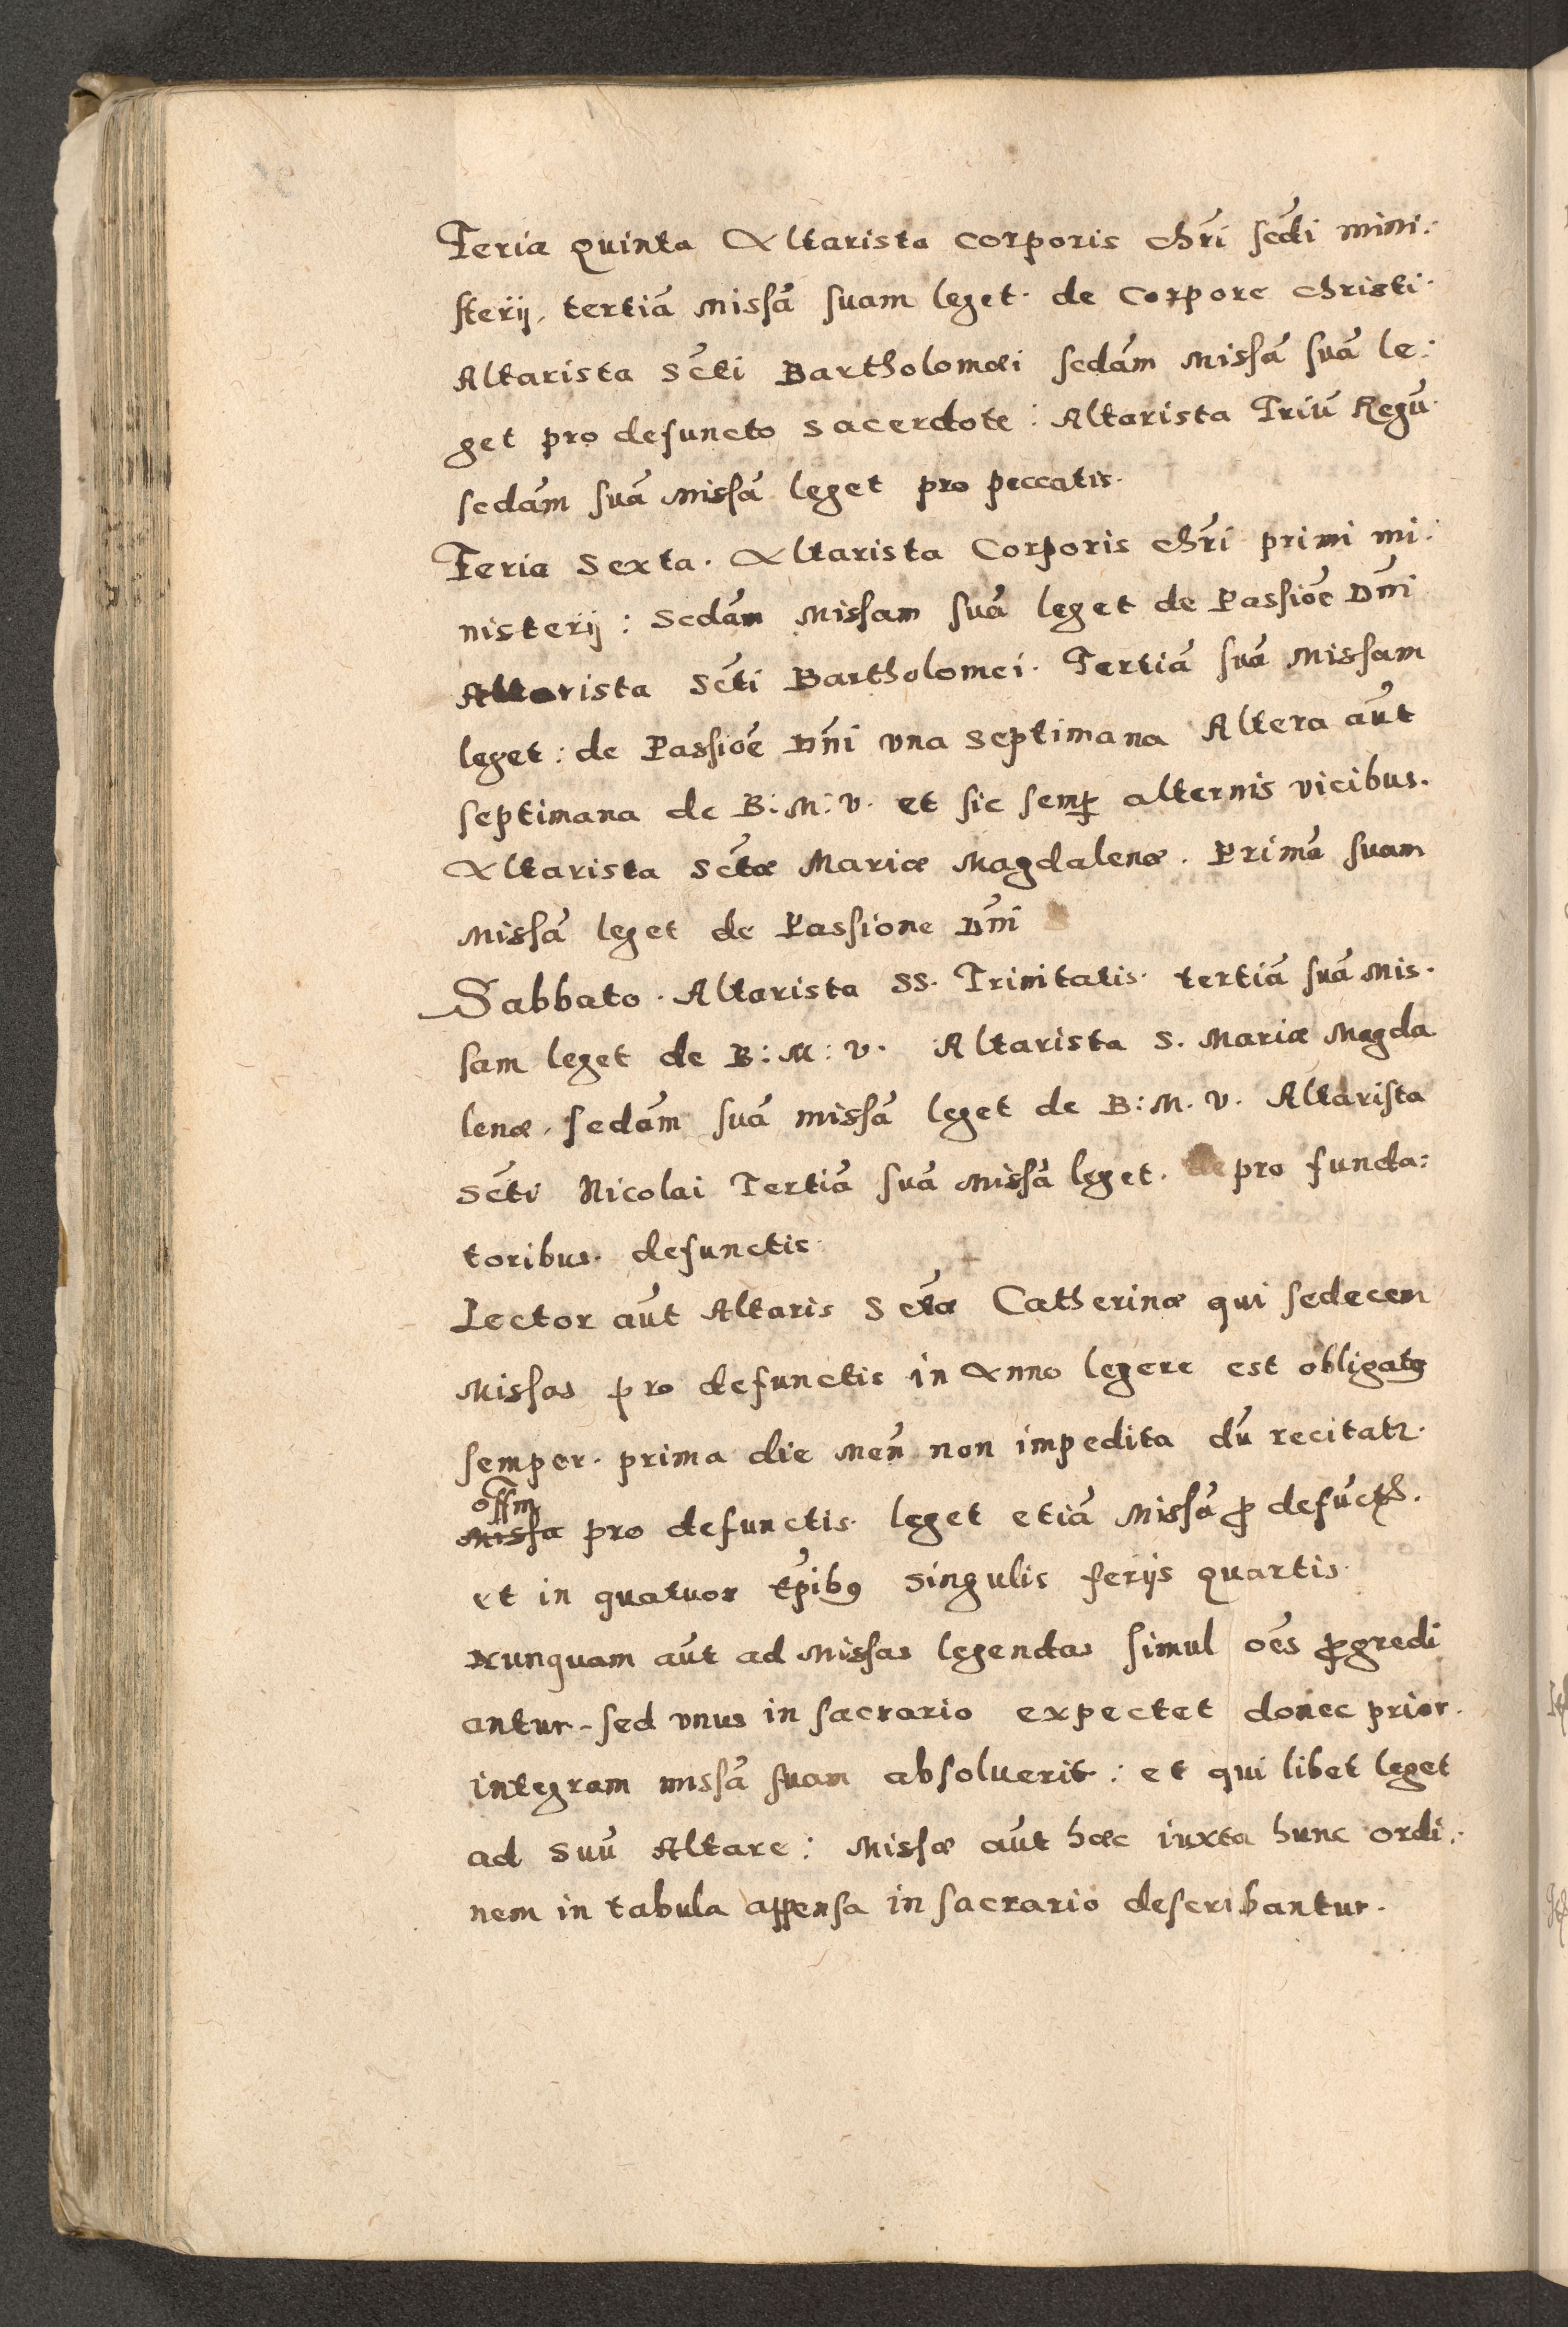 Feria Quinta Altarista Corporis Chri̅ secdi̅ mini:
sterij, tertia̅ Missa̅ suam leget. de Corpore Christi.
Altarista Scti̅ Bartholomæi secda̅m Missa̅ sua̅ le:
get pro defuncto Sacerdote: Altarista Triu̅ Regu̅.
secda̅m sua̅ Missa̅ leget pro peccatis.
Feria Sexta. Altarista Corporis Chri̅ primi mi:
nisterij: Secda̅m Missam sua̅ leget de Passio̅e Dn̅i
Altarista Scti̅ Bartholomei. Tertia̅ sua̅ Missam
leget: de Passio̅e Dn̅i vna Septimana Altera au̅t
septimana de B: M: V. et sic semꝑ alternis vicibus.
Altarista Sctæ̅ Mariæ Magdalenæ. Prima̅ suam
Missa̅ leget de Passione Dn̅i
Sabbato. Altarista SS. Trinitatis. tertia̅ sua̅ Mis.
sam leget de B: M: V. Altarista S. Mariæ Magda
lenæ, secda̅m sua̅ missa̅ leget de B: M. V. Altarista
Scti̅ Nicolai Tertia̅ sua̅ Missa̅ leget. de pro funda:
toribus. defunctis.
Lector au̅t Altaris Sctæ̅ Catherinæ qui sedecem
Missas pro defunctis in Anno legere est obligatꝰ
semper. prima die Men̅ non impedita du̅ recitatꝛ.
offm̅
Missa pro defunctis. leget etia̅ Missa̅ ꝓ defu̅ctis.
et in quatuor tp̅ibꝰ singulis ferijs quartis.
Nunquam au̅t ad Missas legendas simul oe̅s ꝓgredi
antur. sed vnus in sacrario expectet donec prior.
integram missa̅ suam absoluerit: et qui libet leget
ad suu̅ Altare: Missæ au̅t hæc iuxta hunc ordi:
nem in tabula appensa in sacrario describantur.